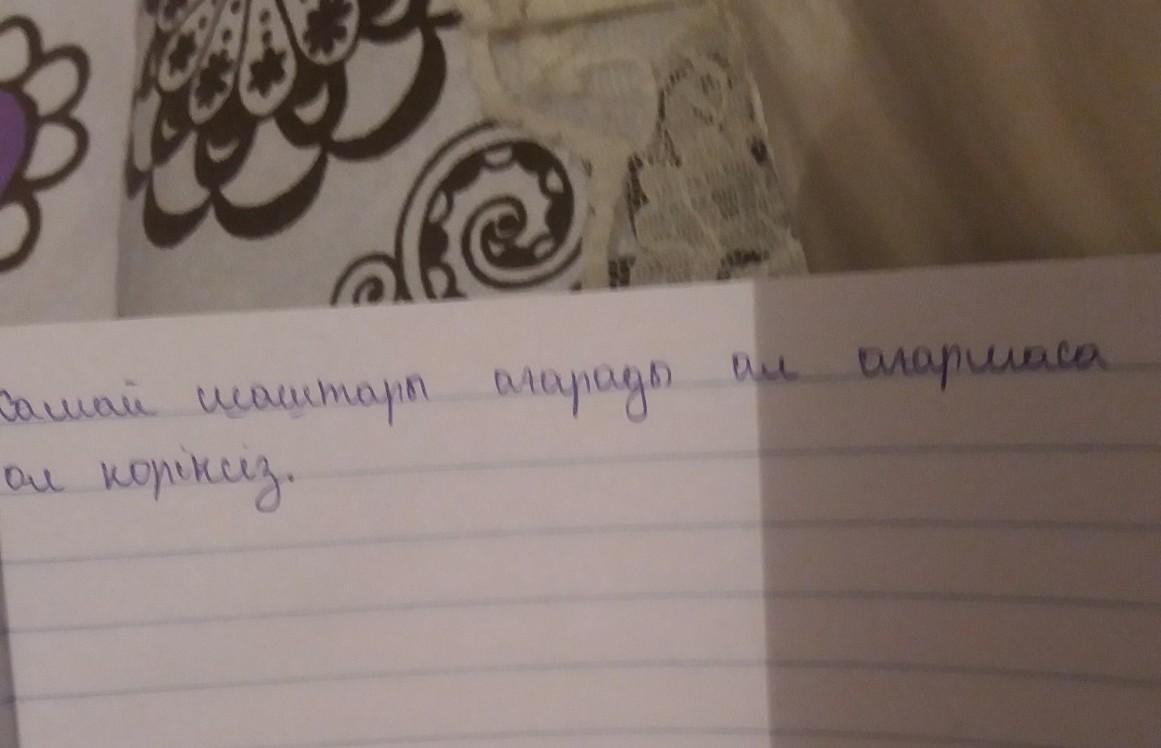 самай шаштары ағарады ал ағармаса
ол көріксіз.